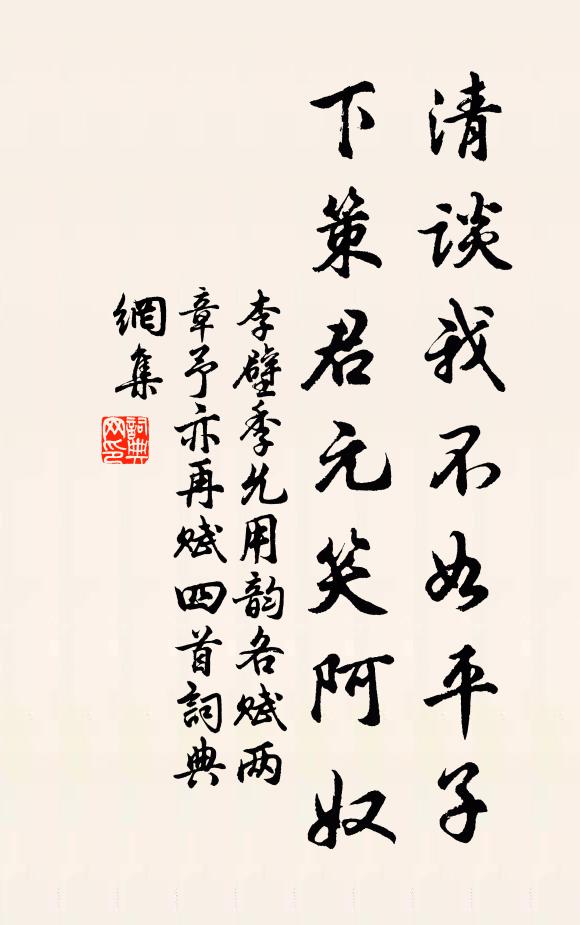 清談我不如平子
下策君元笑阿奴
李壁季允用韵各赋两
章予亦再赋四首詞典
網集
詞典
网印